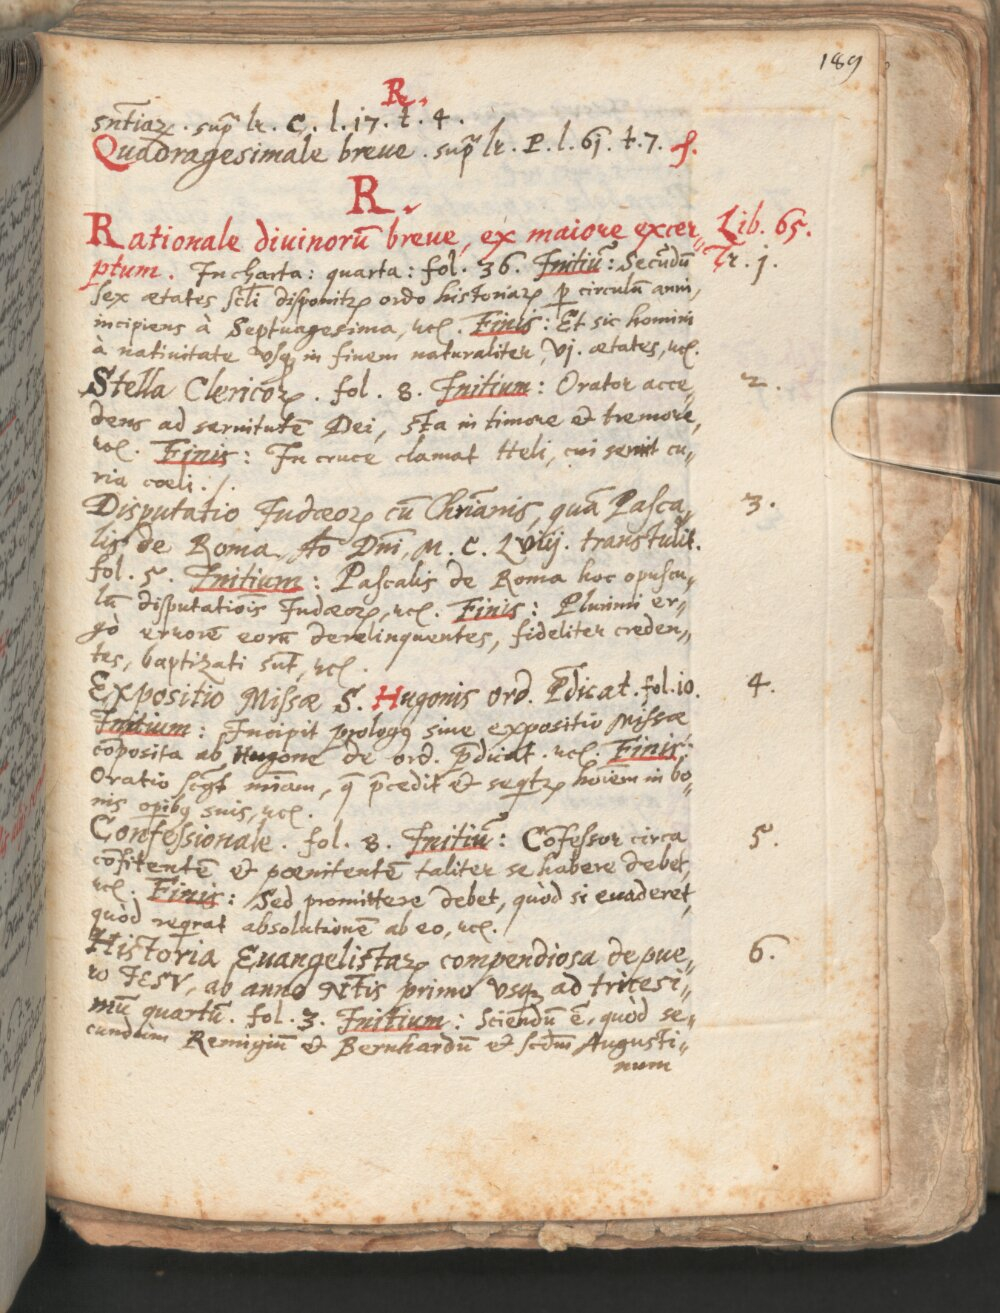 189
R.
sn̄tiaꝝ. sup̄ lr. C. l. 17. t. 4.
Quadragesimale breve. sup̄ lr. P. l. 61. t. 7. f.
R.
Rationale diuinorū breue, ex maiore excer„ Lib. 65.
ptum. In charta: quarta: fol. 36. Initiū: Secūdū Tr. 1.
sex ætates scl̄i disponitꝝ ordo historiaꝝ ꝑ circulū anni,
incipiens à Septuagesima, ꝛcꝭ. Finis: Et sic homini
à natiuitate vsqꝫ in finem naturaliter, vj. ætates, ꝛcꝭ.
Stella Clericoꝝ. fol. 8. Initium: Orator acce„ 2.
dens ad seruitutē Dei, sta in timore et tremore,
ꝛcꝭ. Finis: In cruce clamat Heli, cui seruit cu„
ria cœli./.
Disputatio Iudæoꝝ cū Chrīanis, quā Pasca„ 3.
lis de Roma Ao Dn̄i, M. C. Lviij. transtulit.
fol. 5. Initium: Pascalis de Roma hoc opuscu„
lū disputatiōis Iudæoꝝ, ꝛcꝭ. Finis: Plurimi er„
gò errorē eorū derelinquentes, fideliter creden„
tes, baptizati sūt, ꝛcꝭ.
Expositio Missæ S. Hugonis ord. P̄dicat. fol. 10. 4.
Initium: Incipit prologꝰ siue expositio Missæ
cōposita ab Hugone de ord. p̄dicat. ꝛcꝭ. Finis:
Oratio scꝫ mīam, q̄ p̄cedit et seqtꝝ hoīem in bo„
nis opibꝰ suis, ꝛcꝭ.
Confessionale. fol. 8. Initiū: Cōfessor circa 5.
cōfitentē et pœnitentē taliter se habere debet,
ꝛcꝭ. Finis: Sed promittere debet, quòd si euaderet,
quòd reqrat absolutionē ab eo, ꝛcꝭ.
Historia Euangelistaꝝ compendiosa de pue„ 6.
ro IESV, ab anno Ntīs primo vsqꝫ ad tricesi„
mū quartū. fol. 3. Initium: Sciendū ē, quòd se„
cundum Remigiū et Bernhardū et scdm̄ Augusti„
num